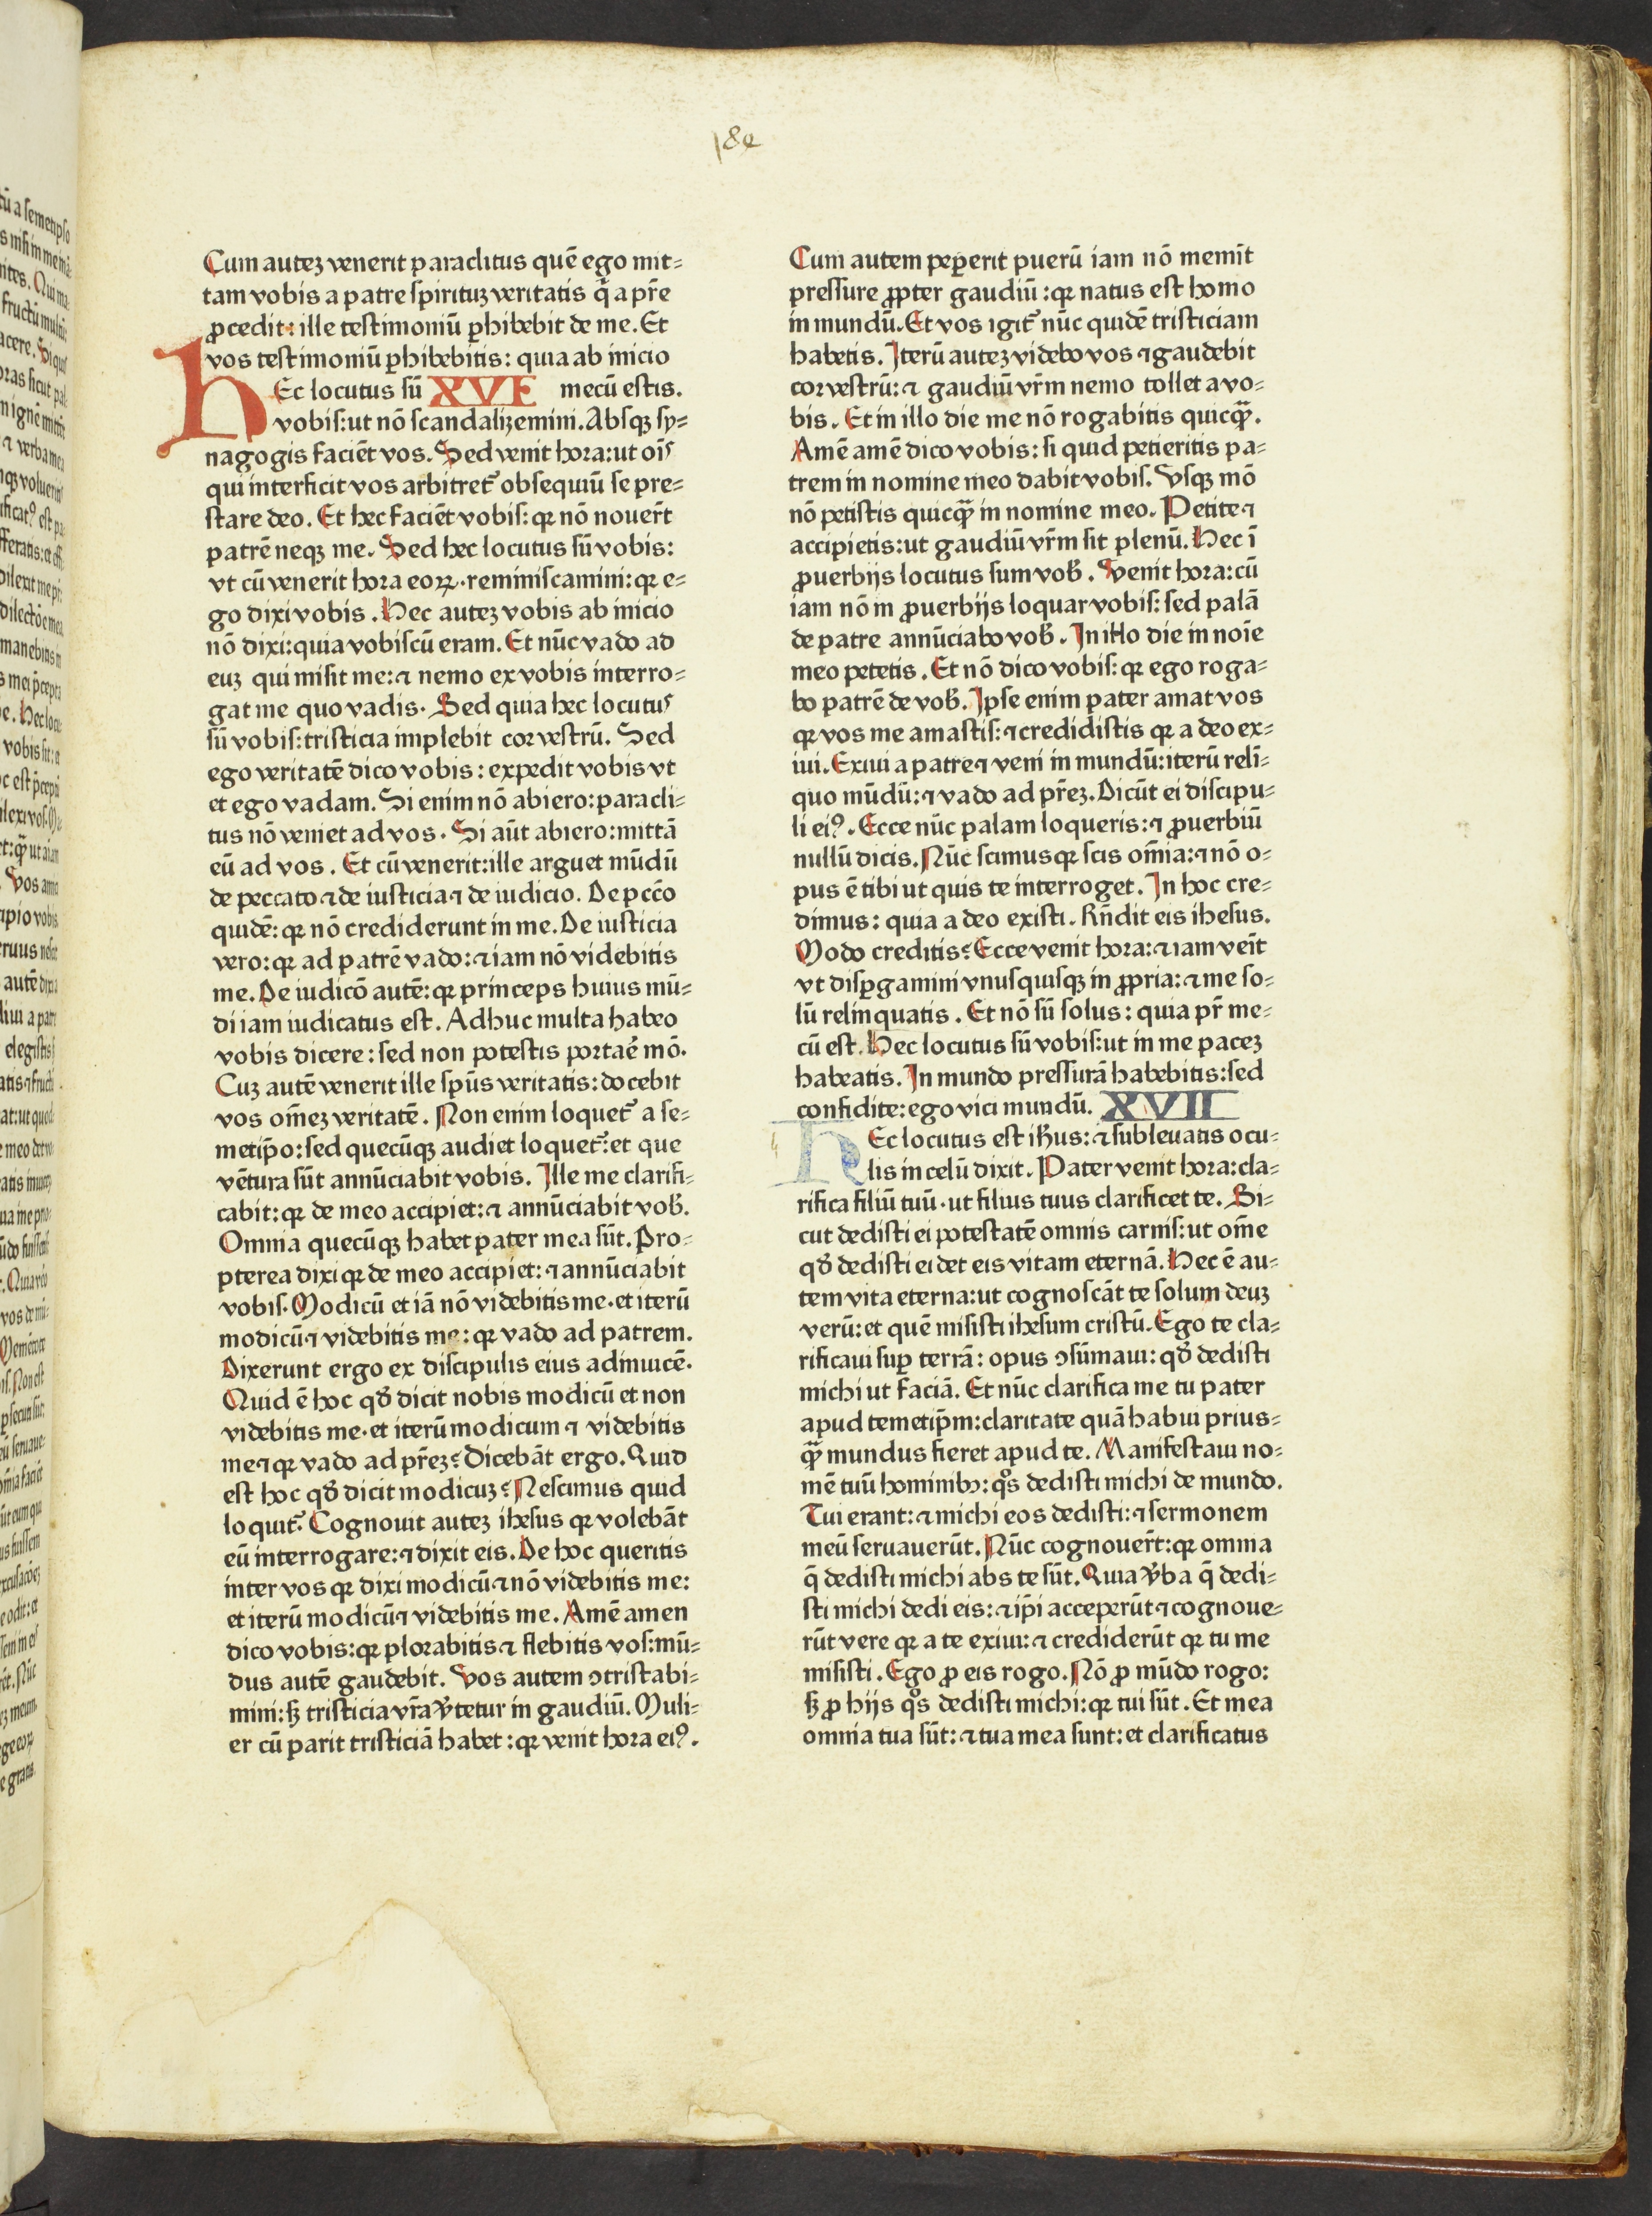 184
Cum autez venerit paraclitus quē ego mit=
tam vobis a patre spirituz veritatis q̇ a pr̄e
ꝓcedit: ille testimoniū ꝑhibebit de me. Et
vos testimoniū ꝑhibebitis: quia ab inicio
HEc locutus sū XVI mecū estis.
vobis:ut nō scandalizemini. Absqꝫ sy=
nagogis faciēt vos. Sed venit hora:ut oīs
qui interficit vos arbitret᷑ obsequiū se pre=
stare deo. Et hec faciēt vobis: qꝛ nō nouer̄t
patrē neqꝫ me. Sed hec locutus sū vobis:
vt cū venerit hora eoꝝ. reminiscamini: qꝛ e=
go dixi vobis. Hec autez vobis ab inicio
nō dixi:quia vobiscū eram. Et nūc vado ad
euz qui misit me:⁊ nemo ex vobis interro=
gat me quo vadis. Sed quia hec locutus
sū vobis:tristicia implebit cor vestrū. Sed
ego veritatē dico vobis: expedit vobis vt
et ego vadam. Si enim nō abiero:paracli=
tus nō veniet ad vos. Si aūt abiero:mittā
eū ad vos. Et cū venerit:ille arguet mūdū
de peccato ⁊ de iusticia ⁊ de iudicio. De pccō
quidē: qꝛ nō crediderunt in me. De iusticia
vero: qꝛ ad patrē vado: ⁊ iam nō videbitis
me. De iudicō autē: qꝛ princeps huius mū=
di iam iudicatus est. Adhuc multa habeo
vobis dicere: sed non potestis portaē mō.
Cuz autē venerit ille spūs veritatis: docebit
vos om̄ez veritatē. Non enim loquet᷑ a se=
metip̄o:sed quecūqꝫ audiet loquet᷑: et que
vētura sūt annūciabit vobis. Ille me clarifi=
cabit: qꝛ de meo accipiet: ⁊ annūciabit vob̄.
Omnia quecūqꝫ habet pater mea sūt. Pro=
pterea dixi qꝛ de meo accipiet: ⁊ annūciabit
vobis. Modicū et iā nō videbitis me. et iterū
modicū ⁊ videbitis me: qꝛ vado ad patrem.
Dixerunt ergo ex discipulis eius adinuicē.
Quid ē hoc qd̄ dicit nobis modicū et non
videbitis me. et iterū modicum ⁊ videbitis
me ⁊ qꝛ vado ad pr̄ez? Dicebāt ergo. Quid
est hoc qd̄ dicit modicuz? Nescimus quid
loquit᷑. Cognouit autez ihesus qꝛ volebāt
eū interrogare: ⁊ dixit eis. De hoc queritis
inter vos qꝛ dixi modicū ⁊ nō videbitis me:
et iterū modicū ⁊ videbitis me. Amē amen
dico vobis: qꝛ plorabitis ⁊ flebitis vos: mū=
dus autē gaudebit. Vos autem ↄtristabi=
mini: sꝫ tristicia vr̄a v̄tetur in gaudiū. Muli=
er cū parit tristiciā habet: qꝛ venit hora eiꝰ.
Cum autem peꝑerit puerū iam nō memīt
pressure ꝓpter gaudiū: qꝛ natus est homo
in mundū. Et vos igit᷑ nūc quidē tristiciam
habetis. Iterū autez videbo vos ⁊ gaudebit
cor vestrū: ⁊ gaudiū vr̄m nemo tollet a vo=
bis. Et in illo die me nō rogabitis quicqꝫ̄.
Amē amē dico vobis: si quid petieritis pa=
trem in nomine meo dabit vobis. Vsqꝫ mō
nō petistis quicqꝫ̄ in nomine meo. Petite ⁊
accipietis: ut gaudiū vr̄m sit plenū. Hec ī
ꝓuerbijs locutus sum vob̄. Venit hora: cū
iam nō in ꝓuerbijs loquar vobis: sed palā
de patre annūciabo vob̄. In illo die in noīe
meo petetis. Et nō dico vobis: qꝛ ego roga=
bo patrē de vob̄. Ipse enim pater amat vos
qꝛ vos me amastis: ⁊ credidistis qꝛ a deo ex=
iui. Exiui a patre ⁊ veni in mundū: iterū reli=
quo mūdū: ⁊ vado ad pr̄ez. Dicūt ei discipu=
li eiꝰ. Ecce nūc palam loqueris: ⁊ ꝓuerbiū
nullū dicis. Nūc scimus qꝛ scis om̄ia: ⁊ nō o=
pus ē tibi ut quis te interroget. In hoc cre=
dimus: quia a deo existi. Rn̄dit eis ihesus.
Modo creditis? Ecce venit hora: ⁊ iam veīt
vt disꝑgamini vnusquisqꝫ in ꝓpria: ⁊ me so=
lū relinquatis. Et nō sū solus: quia pr̄ me=
cū est. Hec locutus sū vobis: ut in me pacez
habeatis. In mundo pressurā habebitis: sed
confidite: ego vici mundū. XVII
HEc locutus est ih̄us: ⁊ subleuatis ocu=
lis in celū dixit. Pater venit hora: cla=
rifica filiū tuū. ut filius tuus clarificet te. Si=
cut dedisti ei potestatē omnis carnis: ut om̄e
qd̄ dedisti ei det eis vitam eternā. Hec ē au=
tem vita eterna: ut cognoscāt te solum deuz
verū: et quē misisti ihesum cristū. Ego te cla=
rificaui suꝑ terrā: opus ↄsūmaui: qd̄ dedisti
michi ut faciā. Et nūc clarifica me tu pater
apud temetip̄m: claritate quā habui prius=
qꝫ̄ mundus fieret apud te. Manifestaui no=
mē tuū hominibꝫ: qͦs dedisti michi de mundo.
Tui erant: ⁊ michi eos dedisti: ⁊ sermonem
meū seruauerūt. Nūc cognouer̄t: qꝛ omnia
q̄ dedisti michi abs te sūt. Quia v̄ba q̄ dedi=
sti michi dedi eis: ⁊ ip̄i acceperūt ⁊ cognoue=
rūt vere qꝛ a te exiui: ⁊ crediderūt qꝛ tu me
misisti. Ego ꝓ eis rogo. Nō ꝓ mūdo rogo:
sꝫ ꝓ hijs qͦs dedisti michi: qꝛ tui sūt. Et mea
omnia tua sūt: ⁊ tua mea sunt: et clarificatus